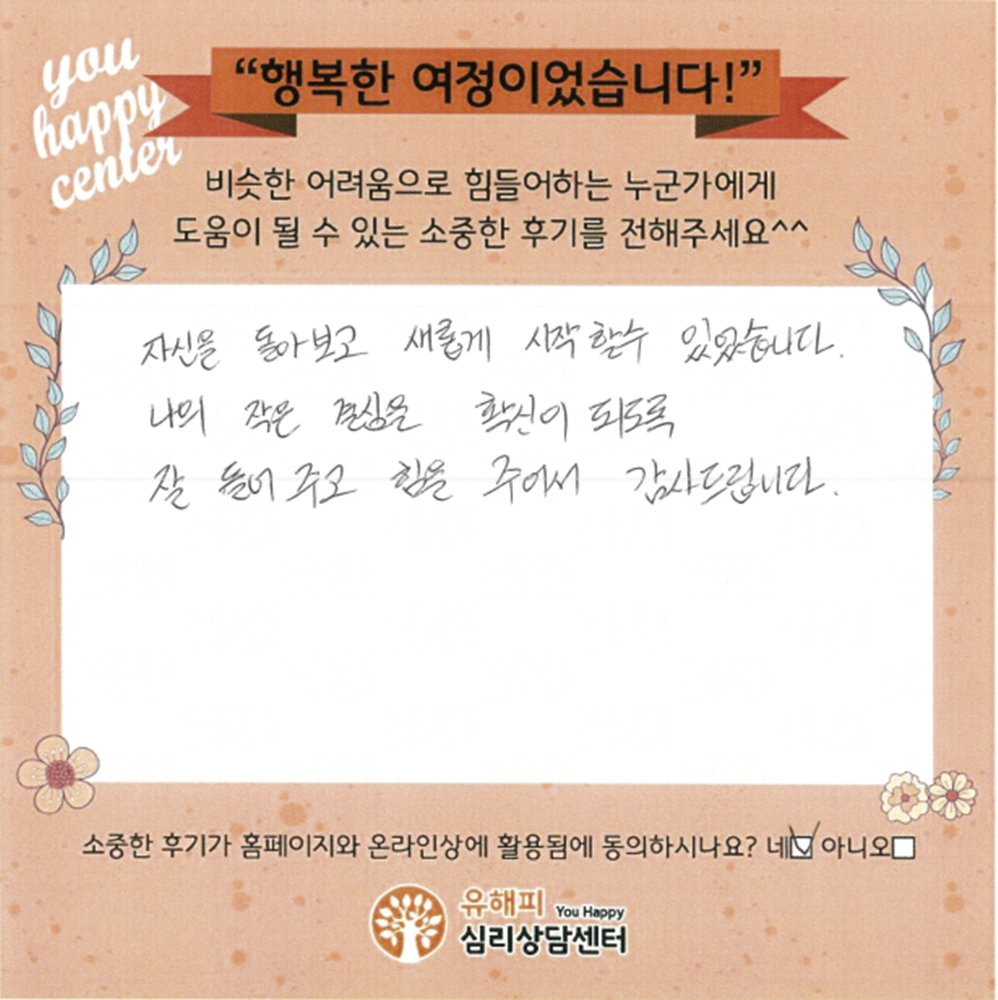 you
happy
center
“행복한 여정이었습니다!”
비슷한 어려움으로 힘들어하는 누군가에게
도움이 될 수 있는 소중한 후기를 전해주세요^^
자신을 돌아보고 새롭게 시작할수 있었습니다.
나의 작은 결심은 확신이 되도록
잘 들어주고 힘을 주어서 감사드립니다.
소중한 후기가 홈페이지와 온라인상에 활용됨에 동의하시나요? 네 아니오
유해피 You Happy
심리상담센터